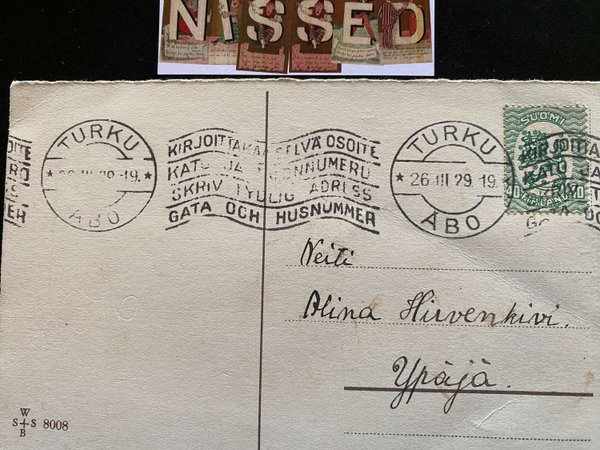 NISSED
TURKU
26.III.29.-19.
ÅBO
KIRJOITTAKAA SELVÄ OSOITE
KATU JA HUONENUMERO
SKRIV TYDLIG ADRESS
GATA OCH HUSNUMMER
TURKU
26.III.29.19.
ÅBO
SUOMI
KIRJOITTA
KATU JA
Neiti
Alina Hirvenkivi.
Ypäjä.
W
S+S 8008
B